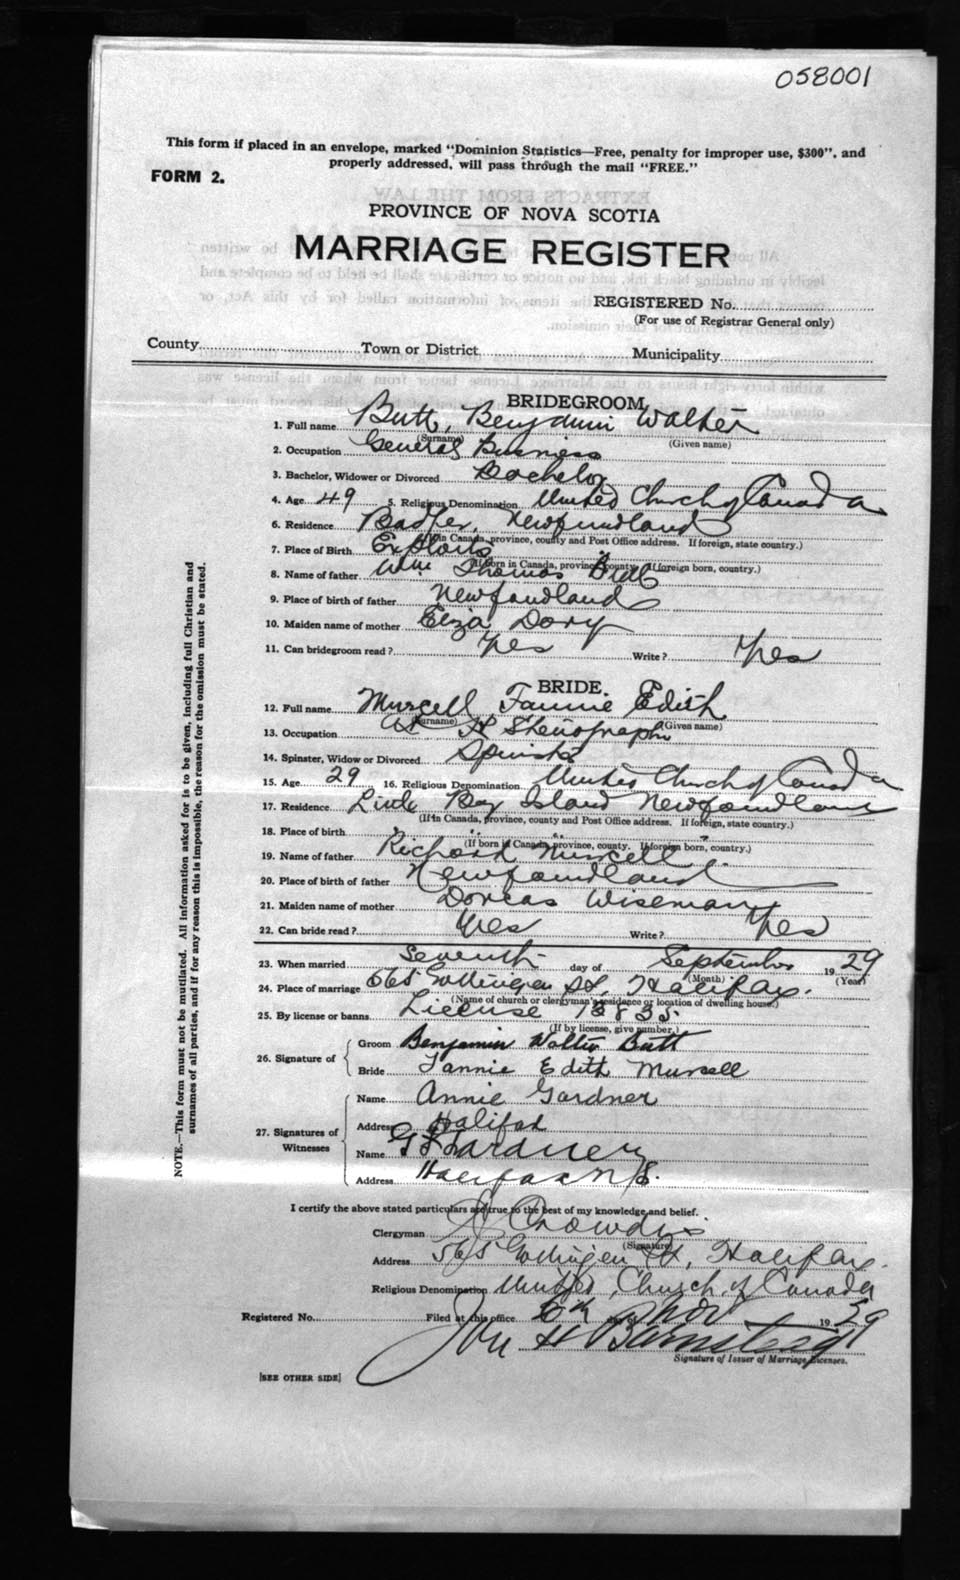 058001
This form if placed in an envelope, marked "Dominion Statistics—Free, penalty for improper use, $300", and
properly addressed, will pass through the mail "FREE."
FORM 2.
PROVINCE OF NOVA SCOTIA
MARRIAGE REGISTER
REGISTERED No.
(For use of Registrar General only)
County Town or District Municipality
BRIDEGROOM
1. Full name Butt, Benjamin Walter
(Surname) (Given name)
2. Occupation General Business
3. Bachelor, Widower or Divorced Bachelor
4. Age 49 5. Religious Denomination United Church of Canada
6. Residence Badger, Newfoundland
(If in Canada, province, county and Post Office address. If foreign, state country.)
7. Place of Birth Exploits
(If born in Canada, province, county. If foreign born, country.)
8. Name of father Wm Thomas Butt
9. Place of birth of father Newfoundland
10. Maiden name of mother Eliza
11. Can bridegroom read? Yes Write? Yes
BRIDE.
12. Full name Mursell Fannie Edith
(Surname) (Given name)
13. Occupation Stenographer
14. Spinster, Widow or Divorced Spinster
15. Age 29 16. Religious Denomination United Church of Canada
17. Residence Little Bay Island Newfoundland
(If in Canada, province, county and Post Office address. If foreign, state country.)
18. Place of birth " " "
(If born in Canada, province, county. If foreign born, country.)
19. Name of father Richard Mursell
20. Place of birth of father Newfoundland
21. Maiden name of mother Dorcas Wiseman
22. Can bride read? Yes Write? Yes
23. When married Seventh day of September 19 29
(Month) (Year)
24. Place of marriage 565 Gottingen St, Halifax.
(Name of church or clergyman's residence or location of dwelling house.)
25. By license or banns License 18835
(If by license, give number.)
26. Signature of Groom Benjamin Walter Butt
Bride Fannie Edith Mursell
27. Signatures of Witnesses
Name Annie Gardner
Address Halifax
Name Gardner
Address Halifax N.S.
I certify the above stated particulars are true to the best of my knowledge and belief.
Clergyman Crowdis
(Signature)
Address 565 Gottingen St, Halifax.
Religious Denomination United Church of Canada
Registered No. Filed at this office 6th day of Nov 19 29
Signature of Issuer of Marriage Licenses.
[SEE OTHER SIDE]
NOTE.—This form must not be mutilated. All information asked for is to be given, including full Christian and
surnames of all parties, and if for any reason this is impossible, the reason for the omission must be stated.